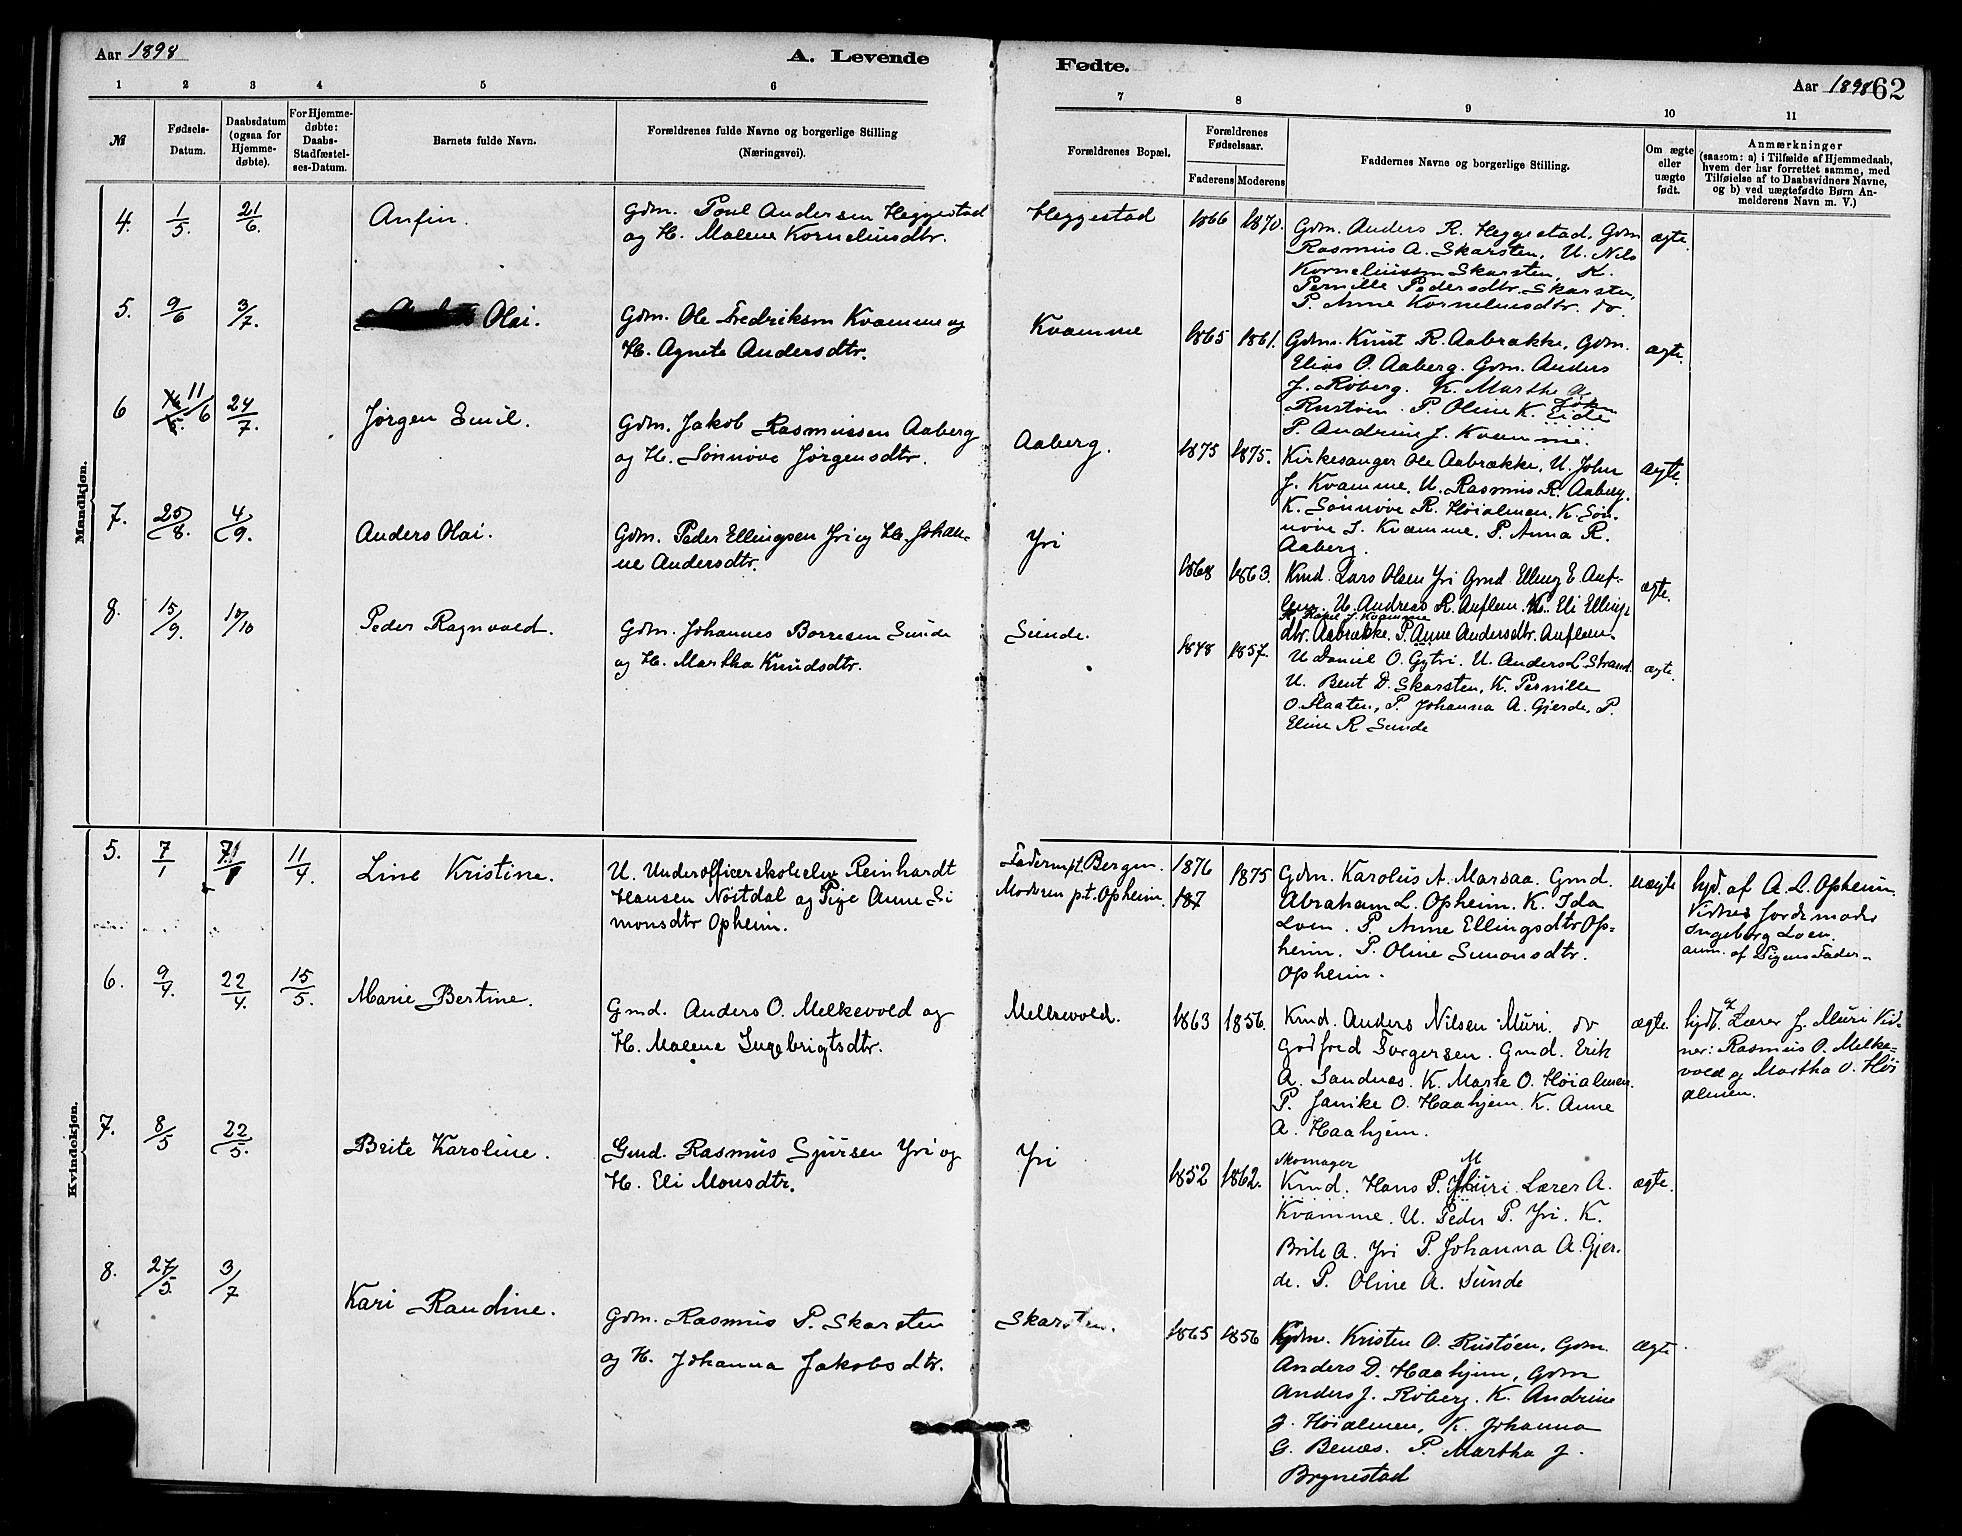 Aar 1898
A. Levende
Fødte.
Aar 1898 62
1 2 3 4 5 6 7 8 9 10 11
№
Fødsels-
Datum.
Daabsdatum
(ogsaa for
Hjemme-
døbte).
For Hjemme-
døbte:
Daabs-
Stadfæstel-
ses-Datum.
Barnets fulde Navn.
Forældrenes fulde Navne og borgerlige Stilling
(Næringsvei).
Forældrenes Bopæl.
Forældrenes
Fødselsaar.
Faderens Moderens
Faddernes Navne og borgerlige Stilling.
Om ægte
eller
uægte
født.
Anmærkninger
(saasom: a) i Tilfælde af Hjemmedaab,
hvem der har forrettet samme, med
Tilføielse af to Daabsvidners Navne,
og b) ved uægtefødte Børn An-
melderens Navn m. V.)
Mandkjøn.
4. 1/5. 21/6. Anfin.
Gdm. Poul Andersen Heggestad
og H. Malene Korneliusdtr.
Heggestad 1866 1870.
Gdm. Anders R. Heggestad, Gdm
Rasmus A. Skarsten, U. Nils
Korneliussen Skarsten, K.
Pernille Pedersdtr. Skarsten,
P. Anne Korneliusdtr. do.
ægte.
5. 9/6 3/7. Olai.
Gdm. Ole Fredriksen Kvamme og
H. Agnete Andersdtr.
Kvamme 1865 1861.
Gdm. Knut R. Aabrække, Gdm.
Elias O. Aaberg. Gdm. Anders
J. Røberg. K. Marthe
Rustøen. P. Oline K. Eide
P. Andrine J. Kvamme.
ægte.
6 11/6 24/7. Jørgen Emil.
Gdm. Jakob Rasmussen Aaberg
og H. Sønnøve Jørgensdtr.
Aaberg. 1875 1875.
Kirkesanger Ole Aabrække, U. John
J. Kvamme, U. Rasmus R. Aaberg.
K. Sønnøve R. Høialmen. K. Søn-
nøve J. Kvamme. P. Anna R.
Aaberg.
ægte.
7. 25/8. 4/9. Anders Olai.
Gdm. Peder Ellingsen Yri og H. Johan-
ne Andersdtr.
Yri 1868 1863.
Kmd. Lars Olsen Yri Gmd. Elling E. Auf-
lem. U. Andreas R. Auflem. K. Eli Ellings
K. Kari J. Kvamme
dtr. Aabrække. P. Anne Andersdtr. Auflem.
ægte.
8. 15/9. 10/10 Peder Ragnvald.
Gdm. Johannes Borresen Sunde
og H. Martha Knudsdtr.
Sunde. 1848 1857.
U Daniel O. Gytri. U. Anders L. Strand.
U. Bent D. Skarsten, K. Pernille
O. Flaaten, P. Johanna A. Gjerde, P.
Eline R Sunde
ægte.
Kvindekjøn.
5. 7/1 7/1 11/4. Line Kristine.
U. Underofficerskoleelev Reinhardt
Hansen Nøstdal og Pige Anne Si
monsdtr Opheim.
Faderen pt. Bergen.
Moderen p.t. Opheim.
1876 1875
187
Gdm. Karolus A. Marsaa. Gmd.
Abraham L. Opheim. K. Ida
Loen. P. Anne Ellingsdtr Op-
heim. P. Oline Simonsdtr.
Opheim.
uægte
hjd. af A. L. Opheim
Vidner Jordemoder
Ingeborg Loen.
anm. af Pigens Fader.
6. 9/4. 22/4. 15/5. Marie Bertine.
Gmd. Anders O. Melkevold og
H. Malene Ingebrigtsdtr.
Melkevold. 1863 1856.
Kmd. Anders Nilsen Muri. do
Godfred Torgersen. Gmd. Erik
A. Sandnes. K. Marte O. Høialmen.
P. Janike O. Haahjem. K. Anne
A. Haahjem.
ægte.
hjdt. af Lærer J. Muri Vid-
ner: Rasmus O. Melke-
vold og Martha O. Høi
almen.
7. 8/5 22/5. Brite Karoline.
Gmd. Rasmus Sjursen Yri og
H. Eli Monsdtr.
Yri 1852 1862.
Skomager
Kmd. Hans P. Muri. Lærer A.
Kvamme. U. Peder P. Yri. K.
Brite A. Yri P. Johanna A. Gjer-
de. P. Oline A. Sunde
ægte.
8. 27/5. 3/7 Kari Raudine.
Gdm. Rasmus P. Skarsten
og H. Johanna Jakobsdtr.
Skarsten. 1865 1856
Gdm. Kristen O. Rustøen, Gdm.
Anders D. Haahjem, Gdm
Anders J. Røberg. K. Andrine
J. Høialmen, K. Johanna
G. Benæs. P. Martha J.
Brynestad
ægte